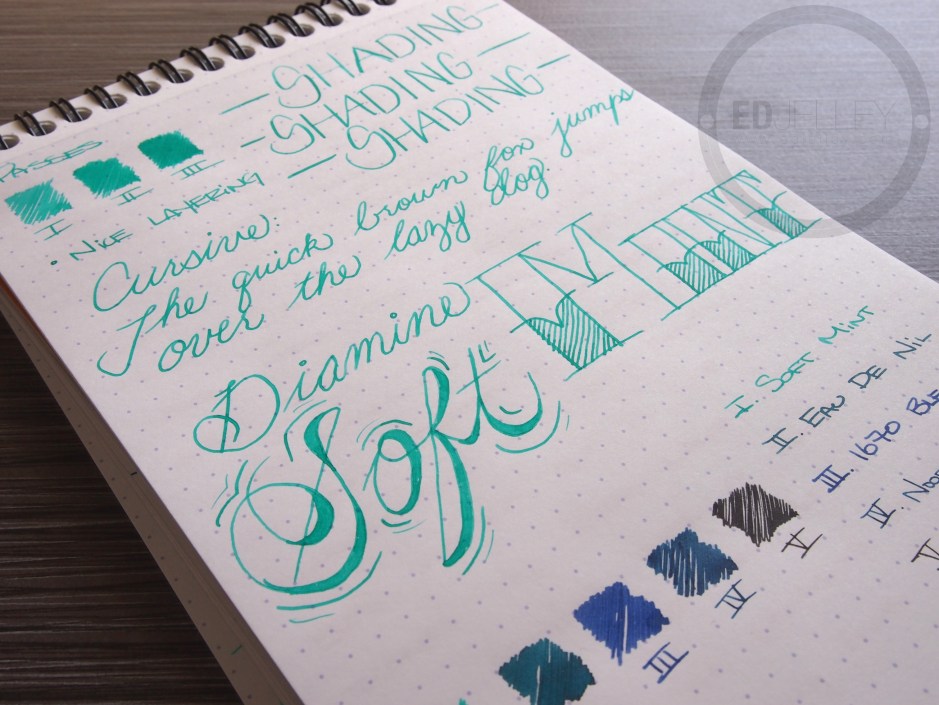 -SHADING-
-SHADING-
-SHADING-
PASSES
I II III
• NICE LAYERING
Cursive:
The quick brown fox jumps
over the lazy dog.
Diamine
Soft MINT
I. SOFT MINT
II. EAU DE NIL
III. 1670
IV.
V
V
IV
III
ED JELLEY